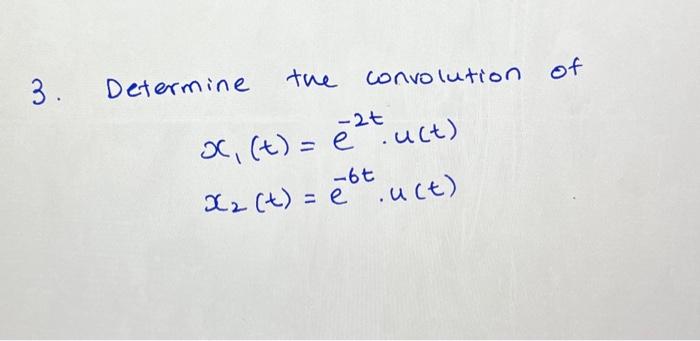 3. Determine the convolution of
x₁(t) = e⁻²ᵗ.u(t)
x₂(t) = e⁻⁶ᵗ.u(t)